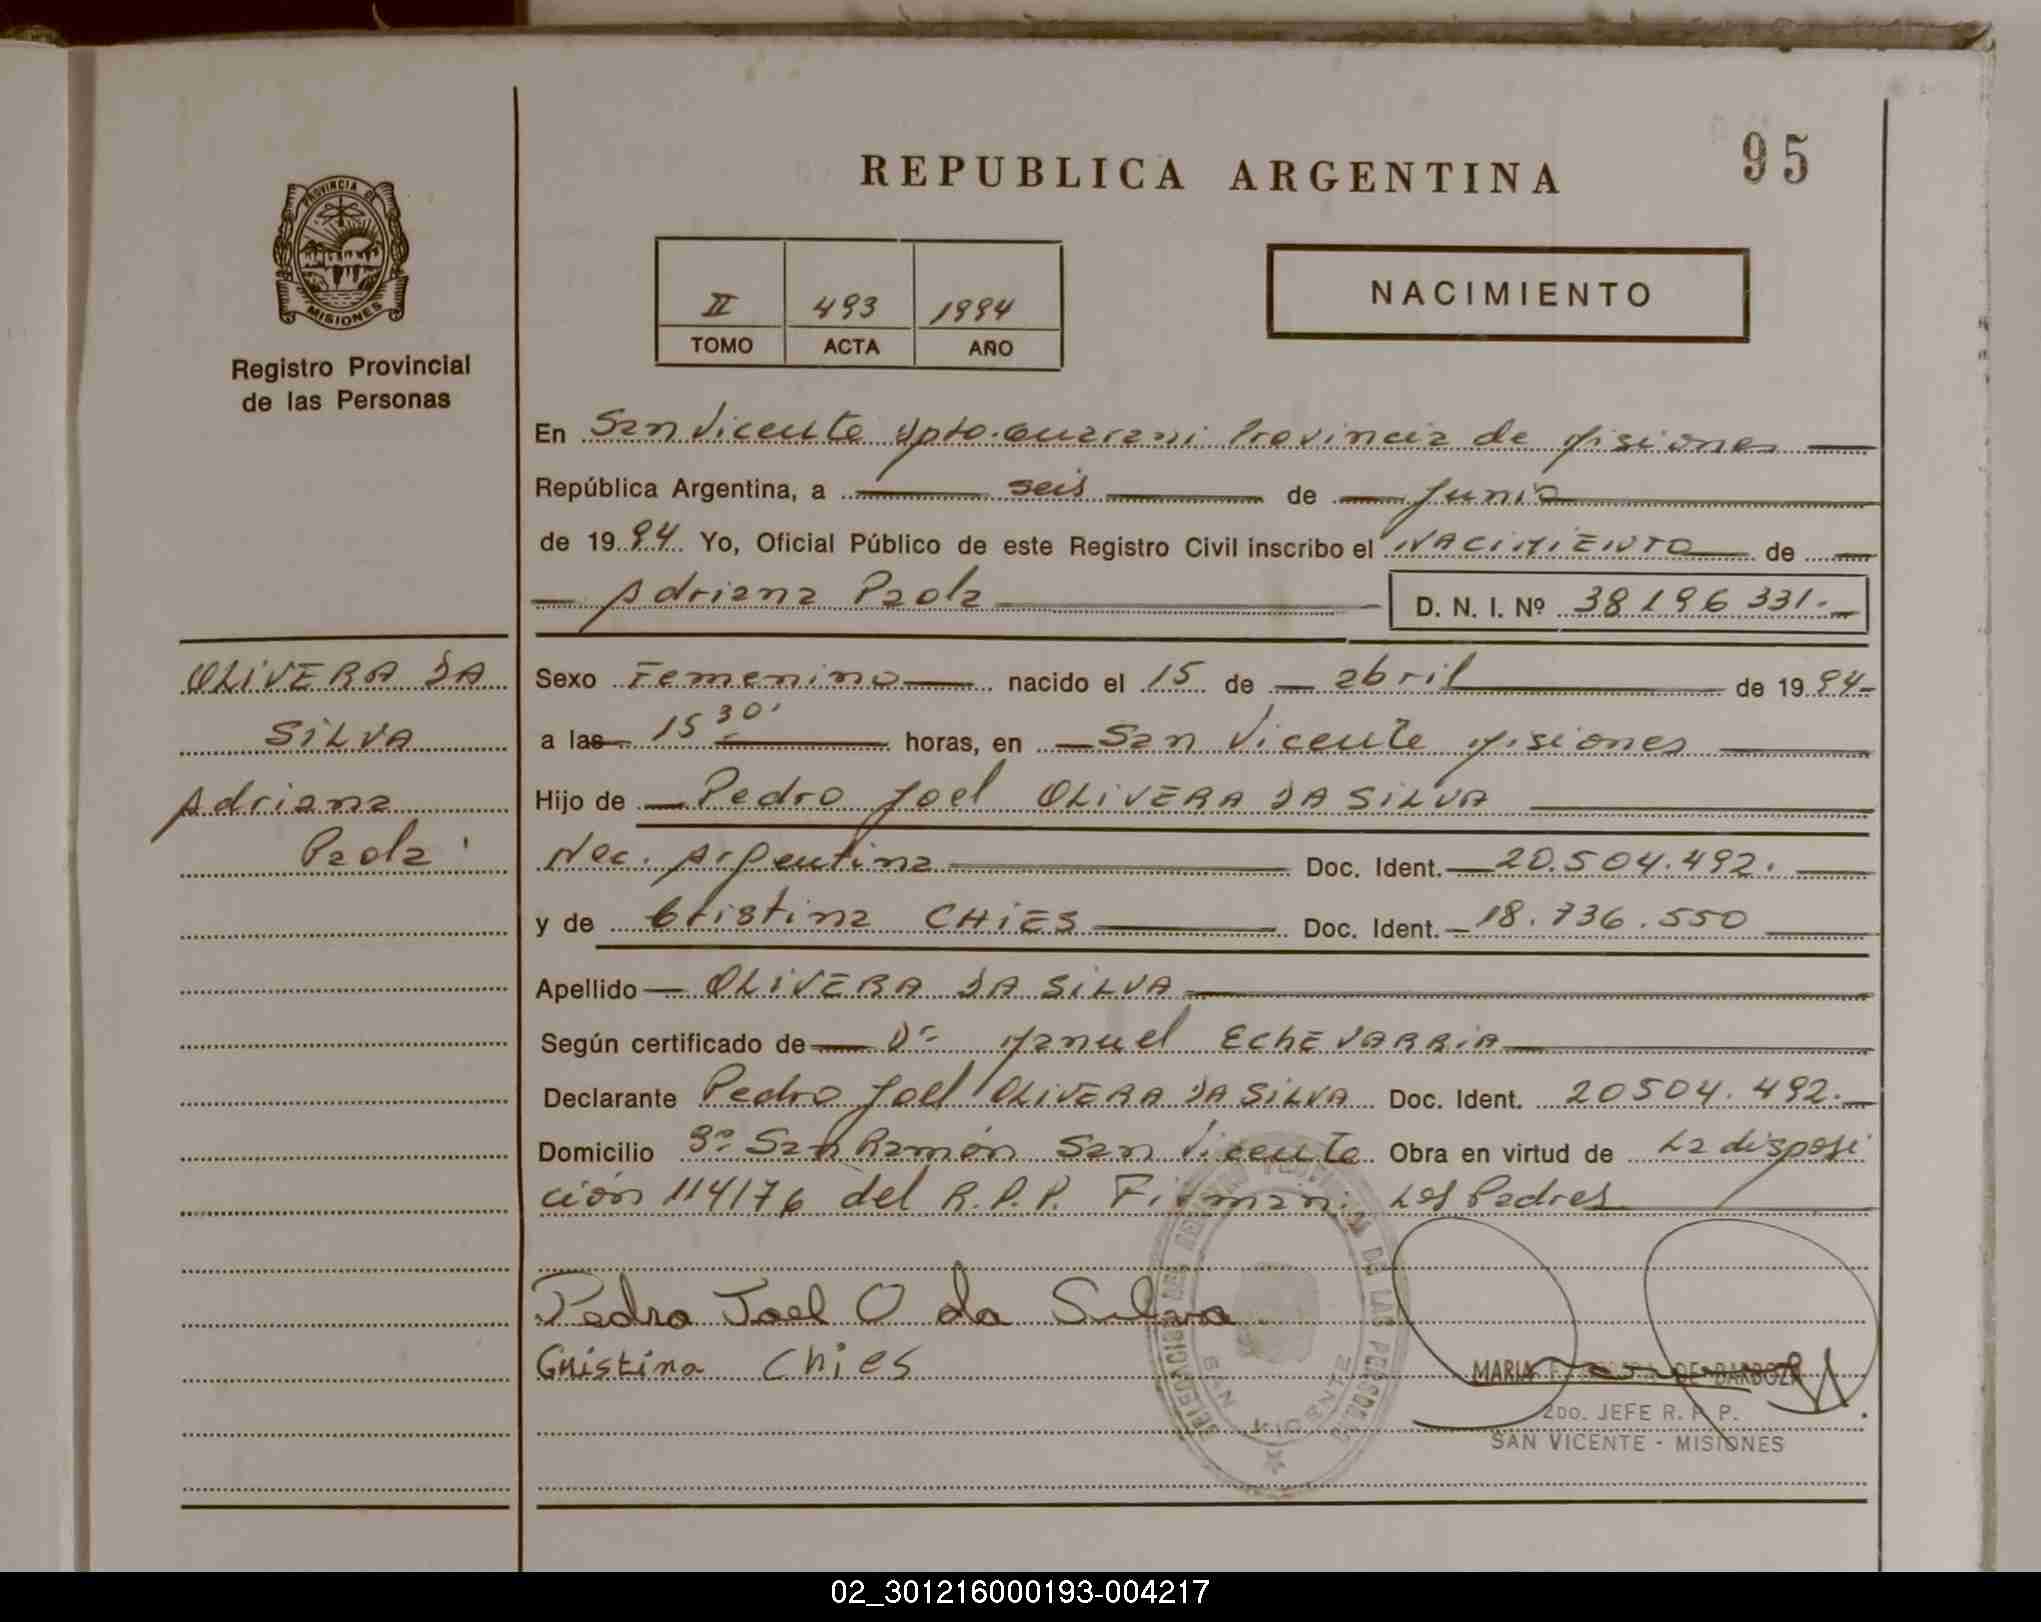 95
REPUBLICA ARGENTINA
PROVINCIA DE
MISIONES
Registro Provincial
de las Personas
II 493 1994
TOMO ACTA AÑO
NACIMIENTO
En San Vicente Dpto. Guarani Provincia de Misiones
República Argentina, a seis de Junio
de 1994 Yo, Oficial Público de este Registro Civil inscribo el NACIMIENTO de
Adriana Paola D. N. I. Nº 38196331.-
OLIVERA DA
SILVA
Adriana
Paola
Sexo Femenino nacido el 15 de abril de 1994-
a las 15 30' horas, en San Vicente Misiones
Hijo de Pedro Joel OLIVERA DA SILVA
Nac. Argentina Doc. Ident. 20.504.492.
y de Cristina CHIES Doc. Ident. 18.736.550
Apellido OLIVERA DA SILVA
Según certificado de Dr. Manuel ECHEVARRIA
Declarante Pedro Joel OLIVERA DA SILVA Doc. Ident. 20504.492.
Domicilio Bº San Ramón San Vicente Obra en virtud de La disposi
ción 114176 del R.P.P. Firman: Los Padres
Pedro Joel O da Silva
Cristina Chies
MARIA DE BARBOZA
2DO. JEFE R. P. P.
SAN VICENTE - MISIONES
DE LAS PERSONAS
SAN VICENTE
02_301216000193-004217